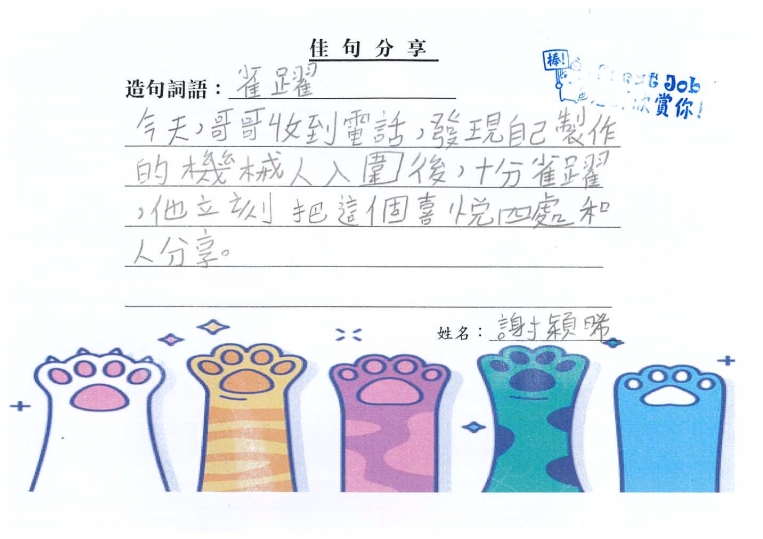 佳句分享
造句詞語：雀躍
今天，哥哥收到電話，發現自己製作
的機械人入圍後，十分雀躍
，他立刻把這個喜悅四處和
人分享。
姓名：謝穎晞
棒!
Job
欣賞你!